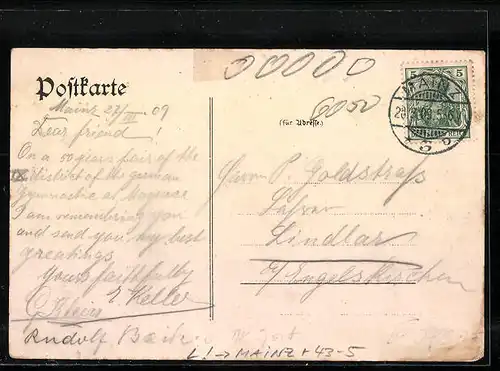 Postkarte
Mainz 27/III 09
Dear friend!
On a 50 years fair of the
IX district of the german
Gymnastic at Mayence
I am remembering you
and send you my best
greatings
Yours faithfully
E Keller
Rudolf
0 0 0 0 0
6050
(für Adresse)
5 5
MAINZ
Herrn P. Goldstraß
Lehrer
Lindlar
b/ Engelskirchen
L! → MAINZ * 43-5